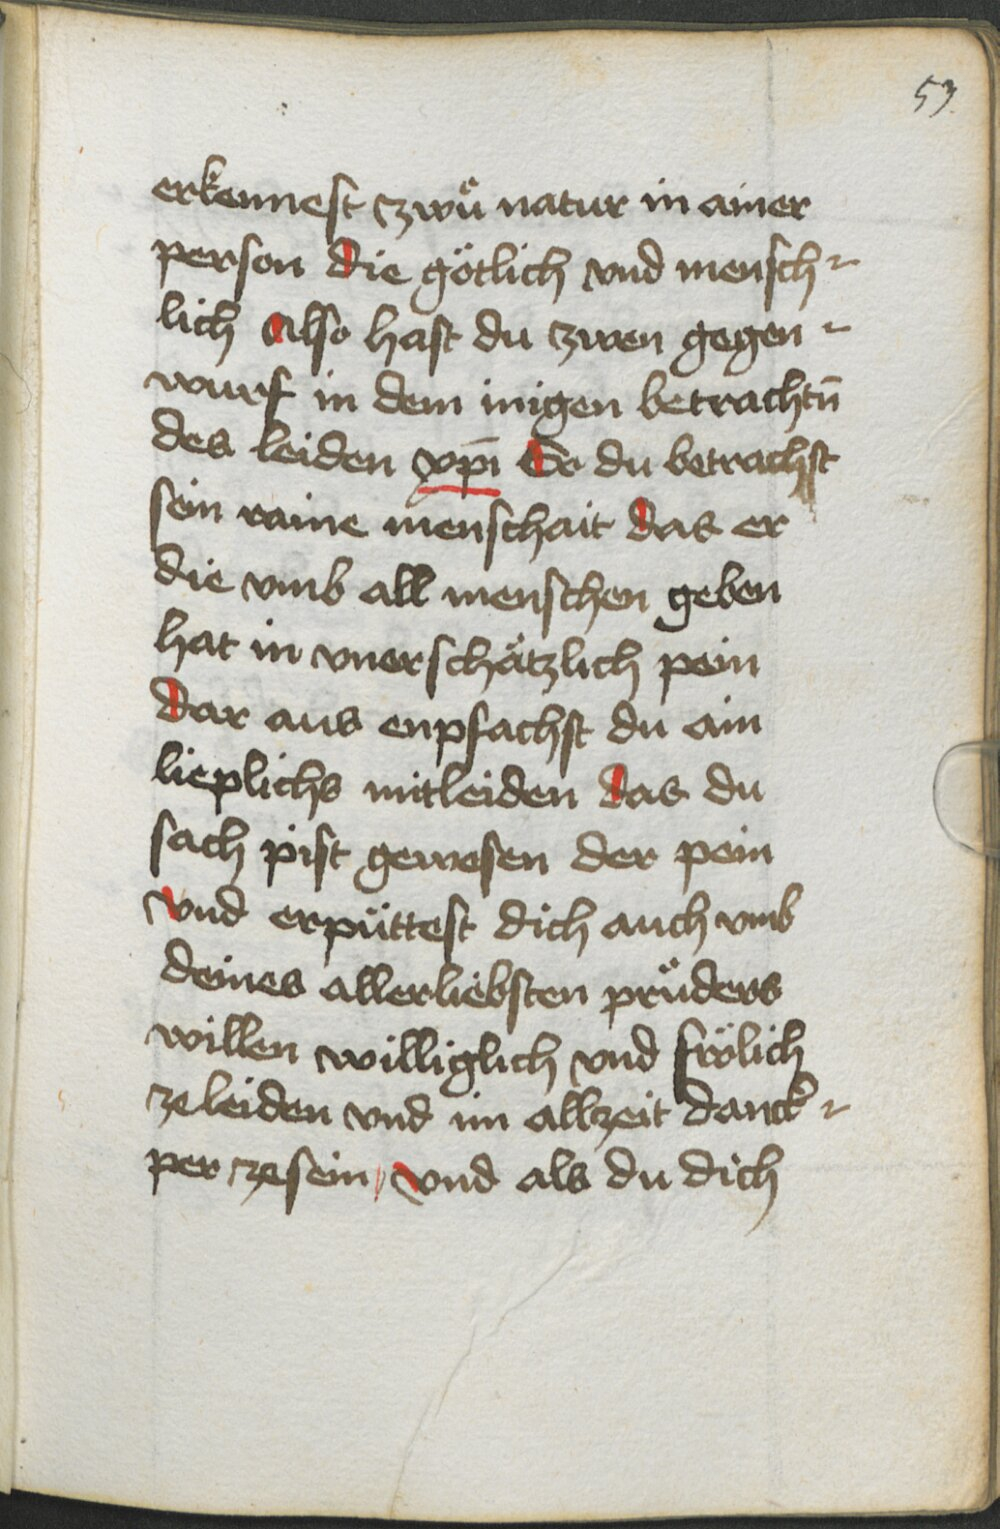 53
erkennest zwuͤ natur in ainer
person die götlich vnd mensch-
lich Also hast du zwen gegen-
wurf in dem inigen betrachtn̄
des leiden xp̄i So du betrachst
sein raine menschait das er
die vmb all menschen geben
hat in vnerschätzlich pein
dar aus enpfachst du ain
lieplichs mitleiden das du
sach pist gewesen der pein
vnd erpüttest dich auch vmb
deines allerliebsten pruͤders
willen williglich vnd frölich
ze leiden vnd im allzeit danck-
per ze sein / vnd als du dich